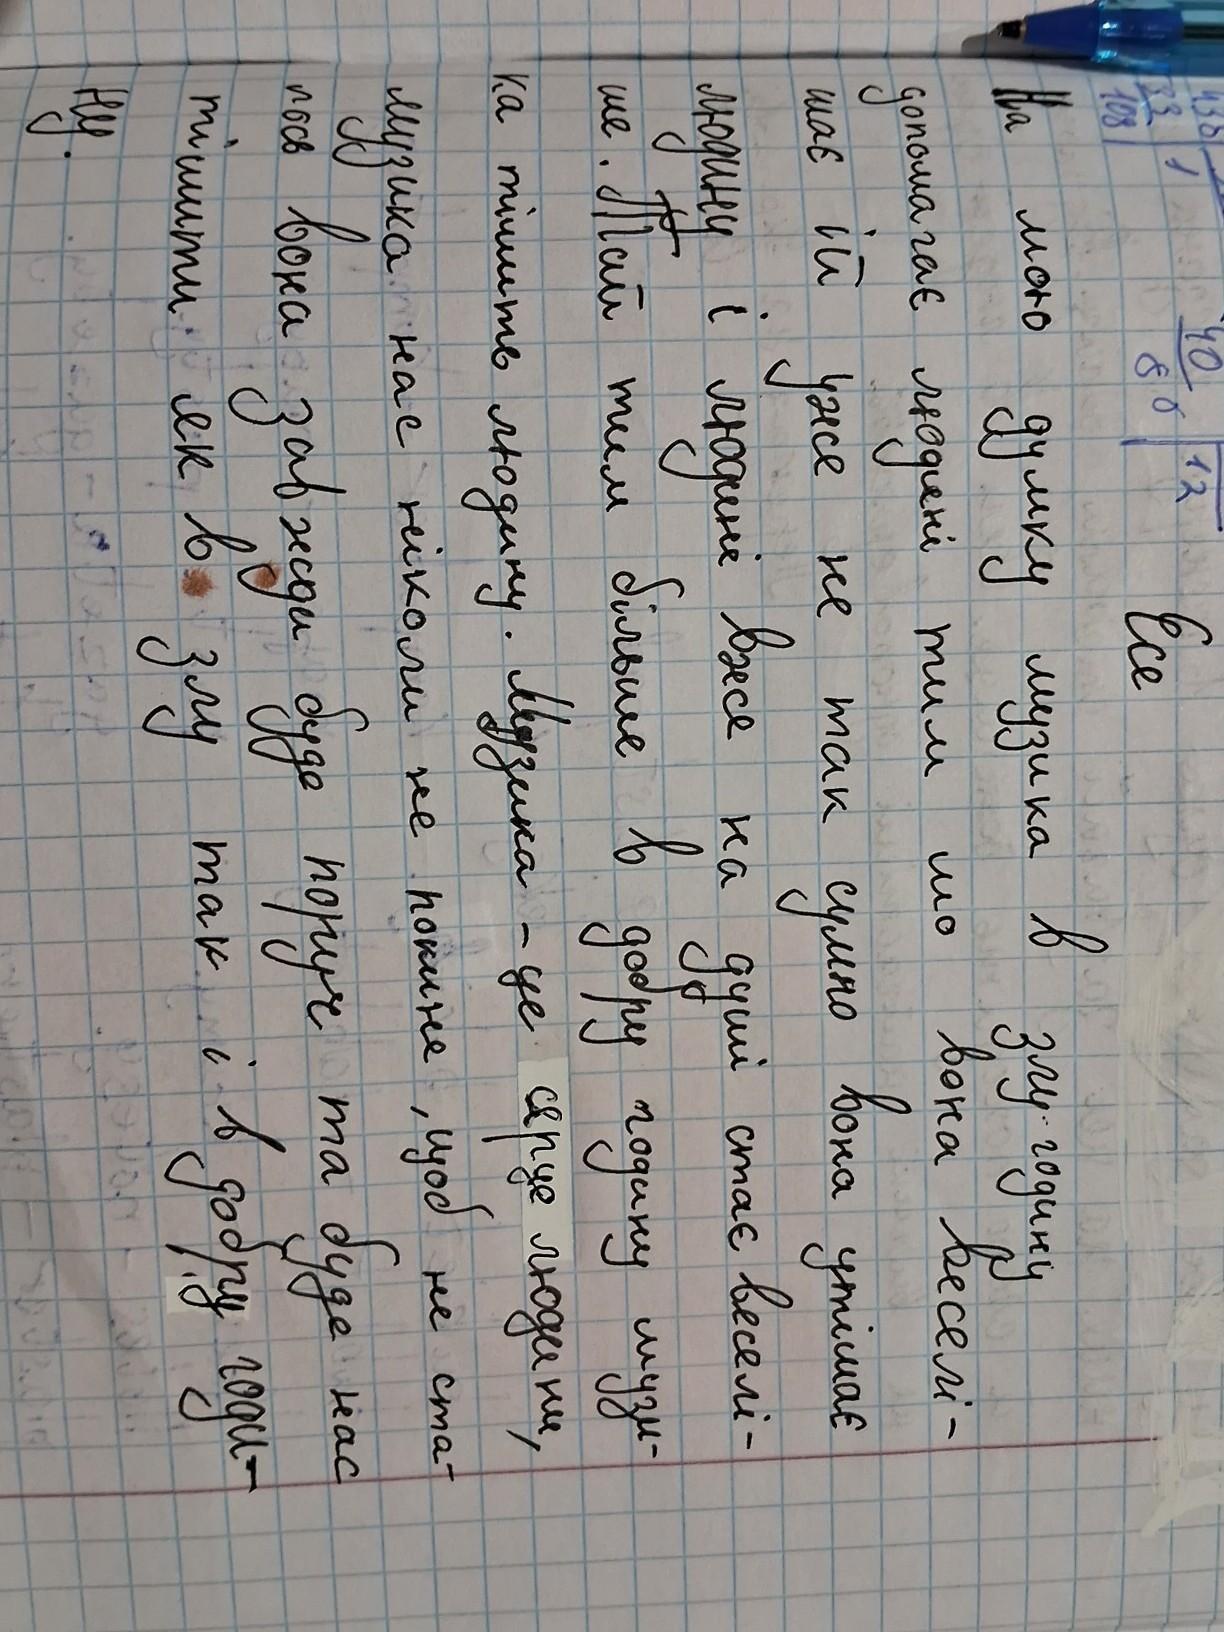 Есе
На мою думку музика в злу годину
допомагає людині тим що вона веселі-
шає їй уже не так сумно вона утішає
людину і людині вже на душі стає веселі-
ше. Тай тим більше в добру годину музи-
ка тішить людину. Музика - це серце людини,
музика нас ніколи не покине, щоб не ста-
лось вона завжди буде поруч та буде нас
тішити як в злу так і в добру годи-
ну.
40
80
12
108
1